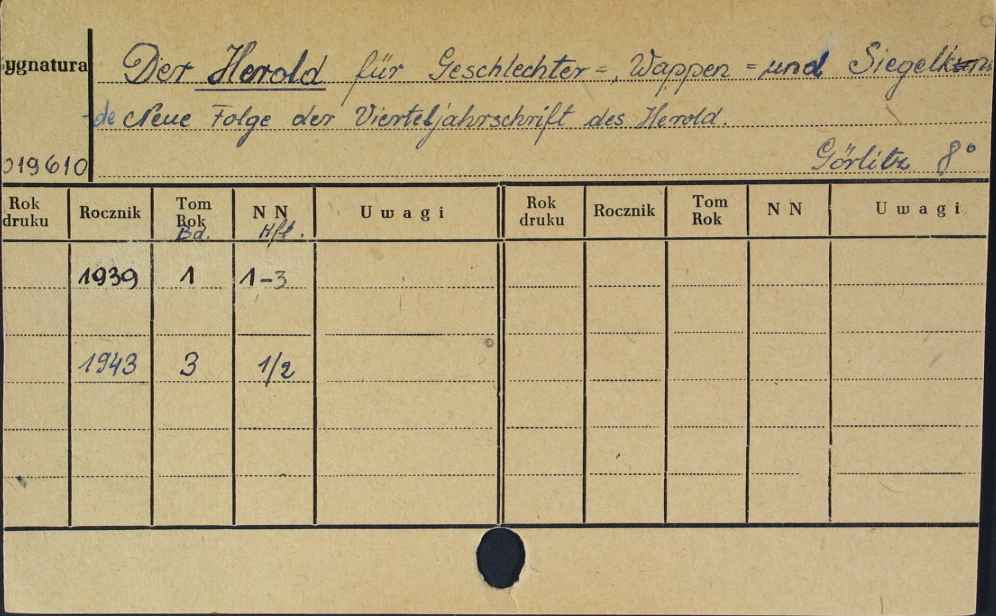 ygnatura Der Herold für Geschlechter=, Wappen= und Siegelkun
de Neue Folge der Vierteljahrschrift des Herold.
019610 Görlitz 8°
Rok druku Rocznik Tom Rok Bd. NN Hft. Uwagi Rok druku Rocznik Tom Rok NN Uwagi
1939 1 1-3
1943 3 1/2